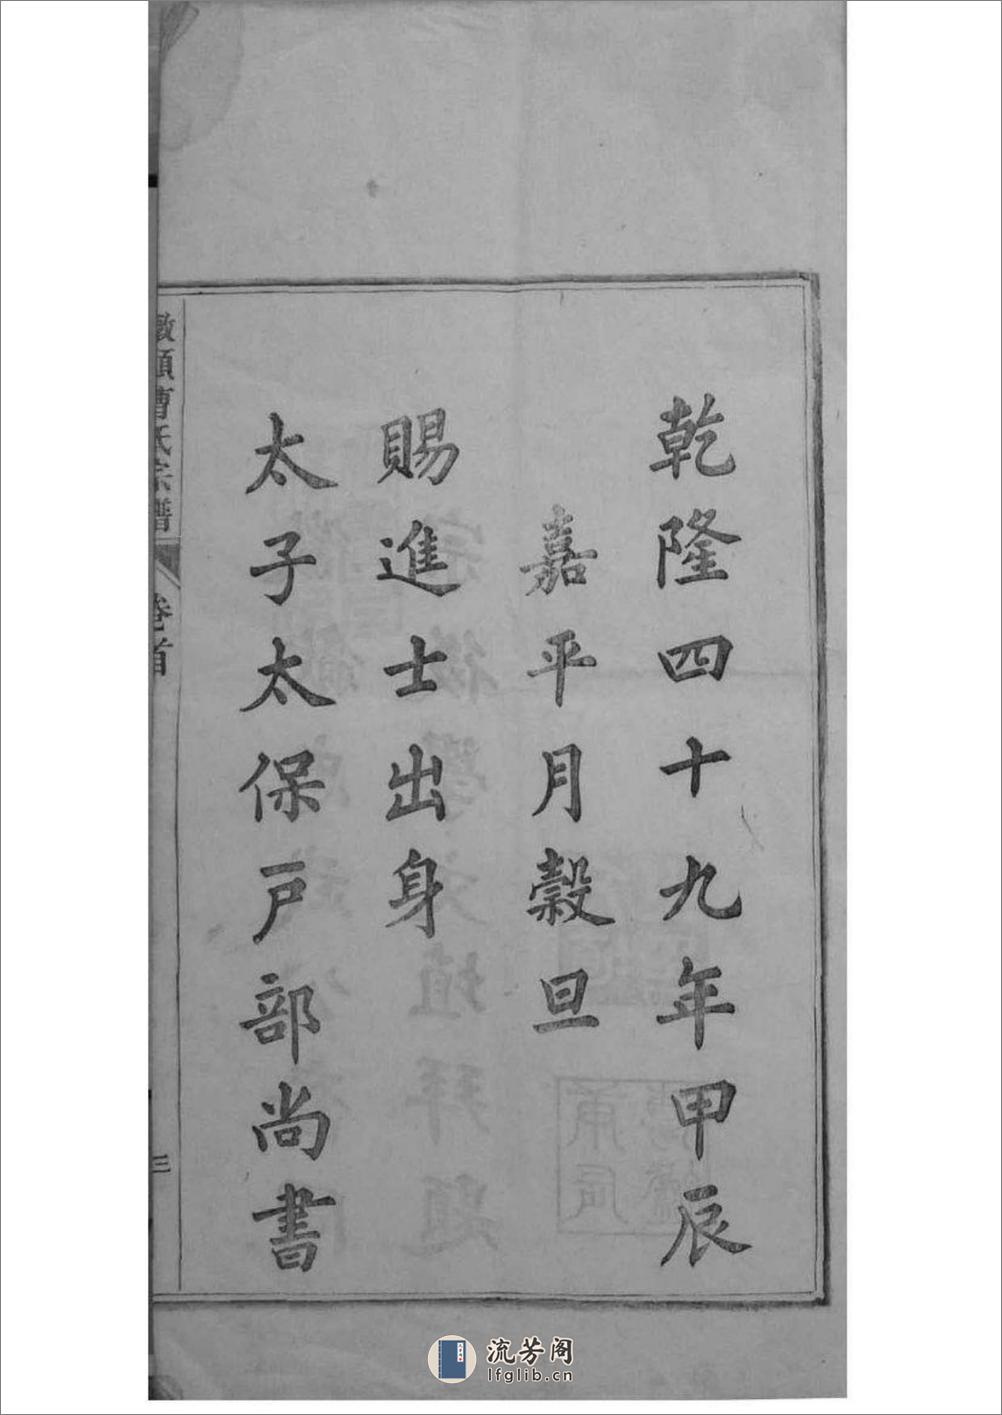 乾隆四十九年甲辰
嘉平月穀旦
賜進士出身
太子太保戸部尚書
墩頭曹氏宗譜
卷首
三
流芳阁
lfglib.cn